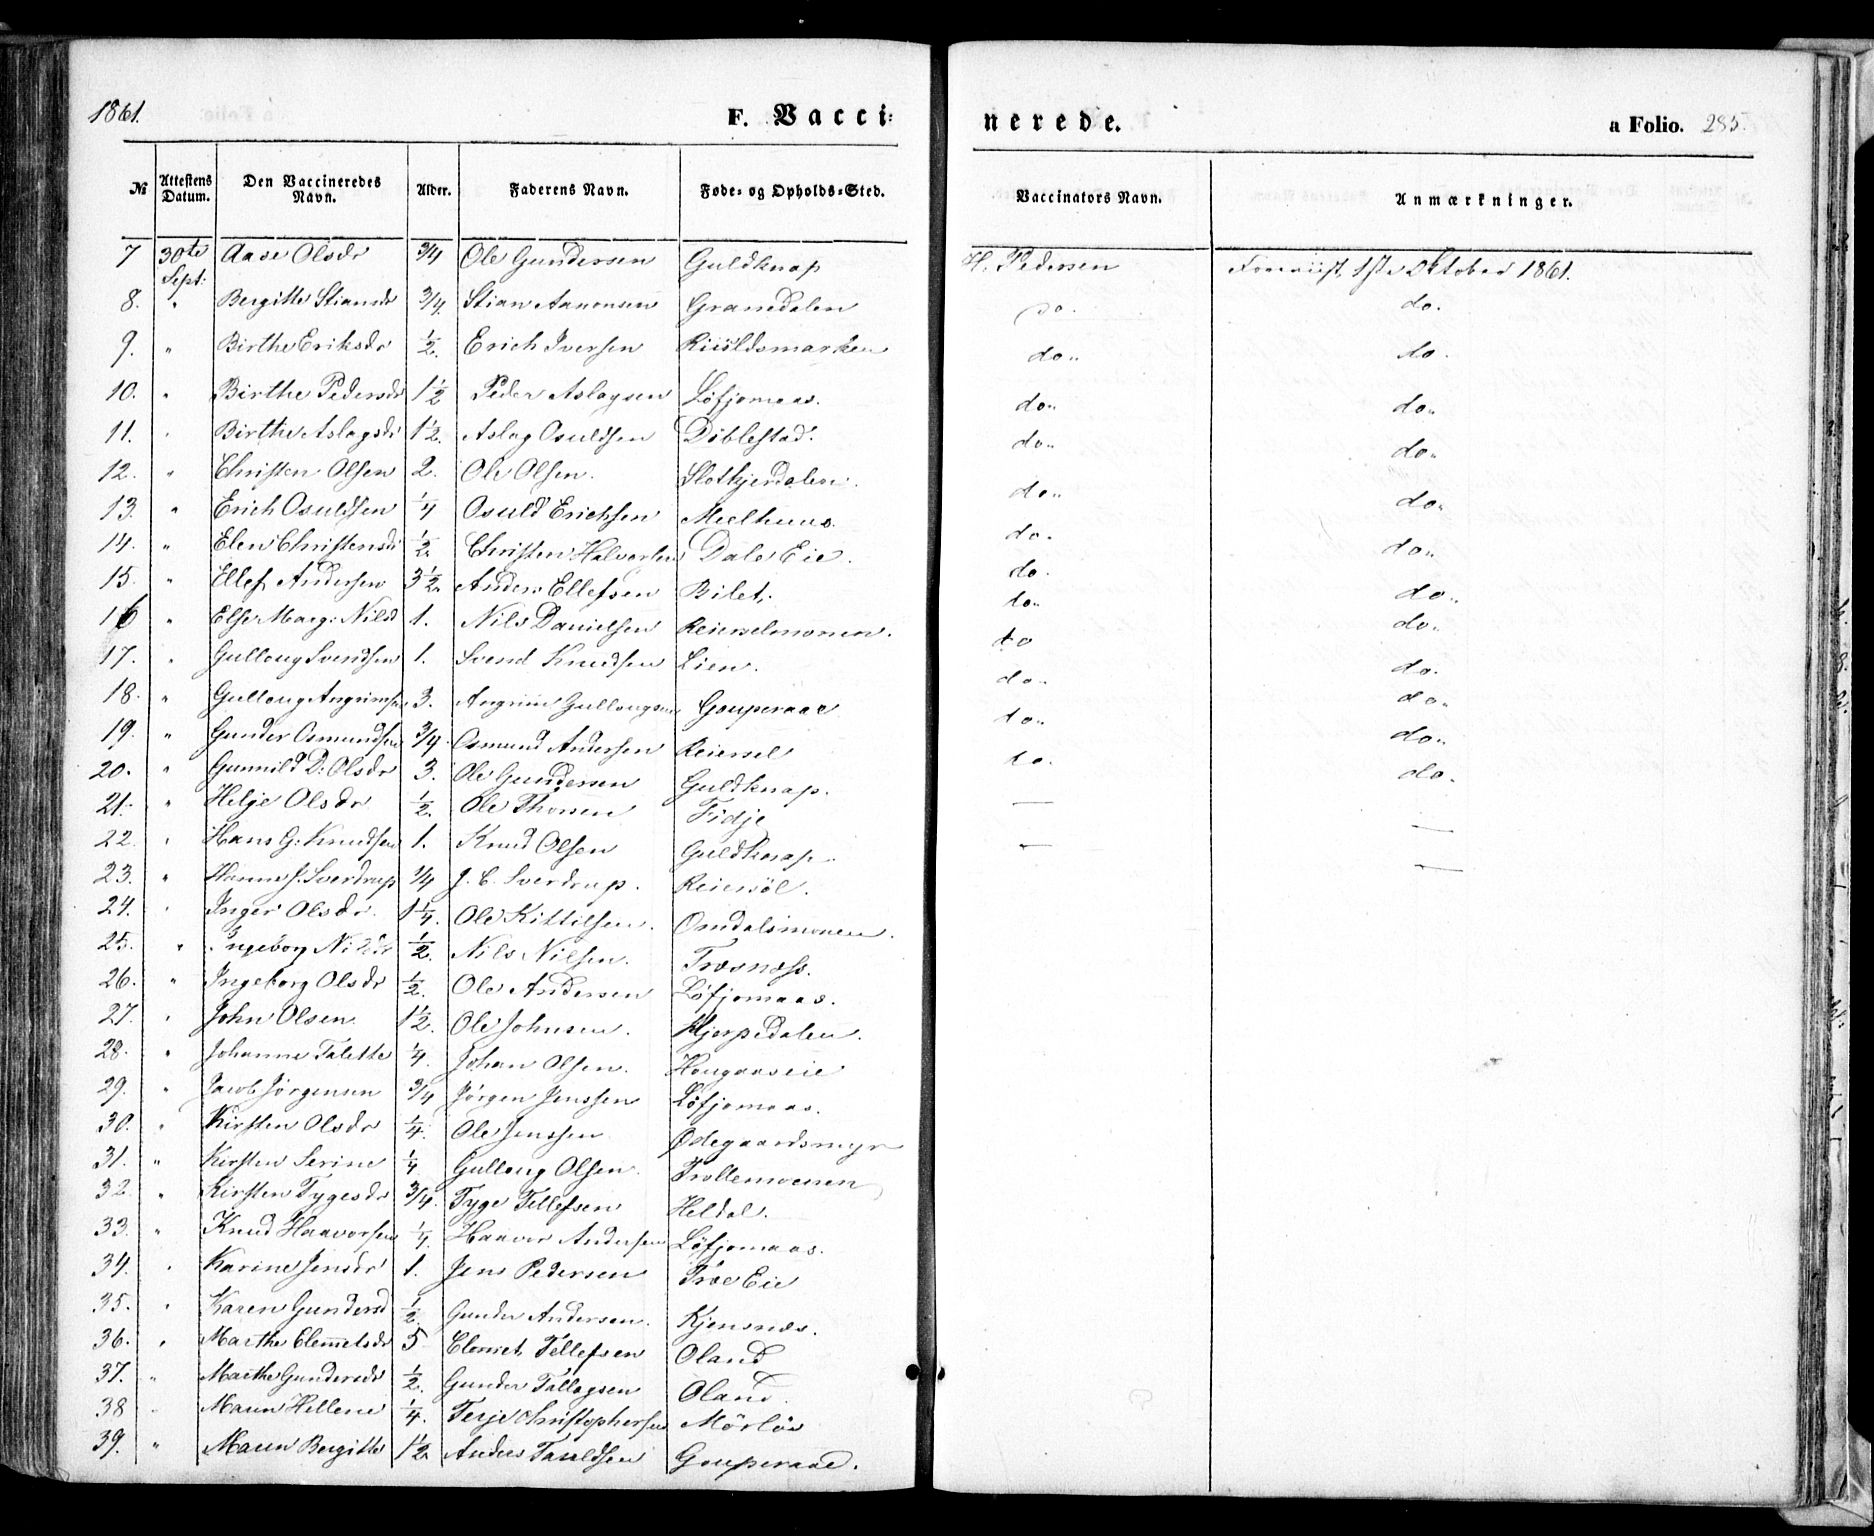 1861.
F. Vacci=
nerede.
a Folio. 285.
No Attestens Datum. Den Vaccineredes Navn. Alder. Faderens Navn. Føde= og Opholds=Sted. Vaccinators Navn. Anmærkninger.
7 30te Sept: Aase Olsdr 3/4 Ole Gundersen Guldknap H. Pedersen 1ste Oktober 1861.
8. " Bergitte Stiansdr 3/4. Stian Aanonsen Gramdalen do. do.
9. " Birthe Eriksdr 1/2. Erich Iversen do.. do.
10. " Birthe Pedersdr 1 1/2 Peder Aslagsen Löfjomaas. do.. do..
11. " Birthe Aslagsdr 1 1/2. Aslag Osuldsen Döblestad. do.. do..
12. " Christen Olsen 2. Ole Olsen. Slotkjerdalen. do.. do..
13. " Erich Osuldsen 1/4 Osuld Erichsen Meelhuus. do. do..
14. " Elen Christensdr 1/2. Christen Halvorsen Dale Eie. do. do..
15. " Ellef Andersen 3 1/2. Anders Ellefsen Bilet. do.. do..
16 " Else Marg: Nilsd 1. Nils Danielsen Reierselmonen. do do..
17. " Gulloug Svendsen 1. Svend Knudsen Lien. do.. do.
18. " Gulloug Angrimsen 3. Angrim Gullougsen Gouperaae do.. do..
19. " Gunder Osmundsen 3/4 Osmund Andersen Reiersel do. do..
20. " Gunnild D: Olsdr 3. Ole Gundersen Guldknap. — do.
21. " Helje Olsdr 1/2. Ole Thorsen Fidje — —
22. " Hans G: Knudsen 1. Knud Olsen Guldknap. —
23. " Hanna J. Sverdrup 1/4 J. C. Sverdrup. Reiersöl.
24. " Inger Olsdr. 1 1/4. Ole Kittilsen. Omdalsmonen.
25. " Ingeborg Nilsdr 1/2. Nils Nilsen. Trösnæss.
26. " Ingeborg Olsdr 1/2. Ole Andersen Löfjomaas.
27. " John Olsen 1 1/2. Ole Johnsen. Hjerpedalen.
28. " Johanne Talette 1/4. Johan Olsen. Hougaaseie
29. " Jacob Jörgensen 3/4 Jörgen Jenssen Löfjomaas.
30. " Kirsten Olsdr 1/4. Ole Jenssen Ødegaardsmyr
31. " Kirsten Serine 1/4 Gulloug Olsen. Trollemoenen
32. " Kirsten Tygesdr 3/4. Tyge Tellefsen Heldal.
33. " Knud Haavorsen 1/4. Haavor Andersen Löfjomaas.
34. " Karine Jensdr 1. Jens Pedersen Træ Eie
35. " Karen Gundersd 1/2. Gunder Andersen. Kjensnæs.
36. " Marthe Clemetsdr 5 Clemet Tellefsen Oland
37. " Marthe Gundersdr 1/2. Gunder Tallagsen Oland
38 " Maren Hellene 1/4. Terje Christophersen Mörlös
39. " Maren Bergitte 1 1/2. Anders Taraldsen Gouperaae.